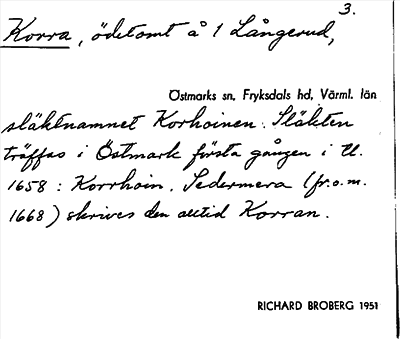 3.
Korra, ödetomt å 1 Långerud,
Östmarks sn, Fryksdals hd, Värml. län
släktnamnet Korhoinen. Släkten
träffas i Östmark första gången i Ul.
1658: Korrhoin. Sedermera (fr.o.m.
1668) skrives den alltid Korran.
RICHARD BROBERG 1951